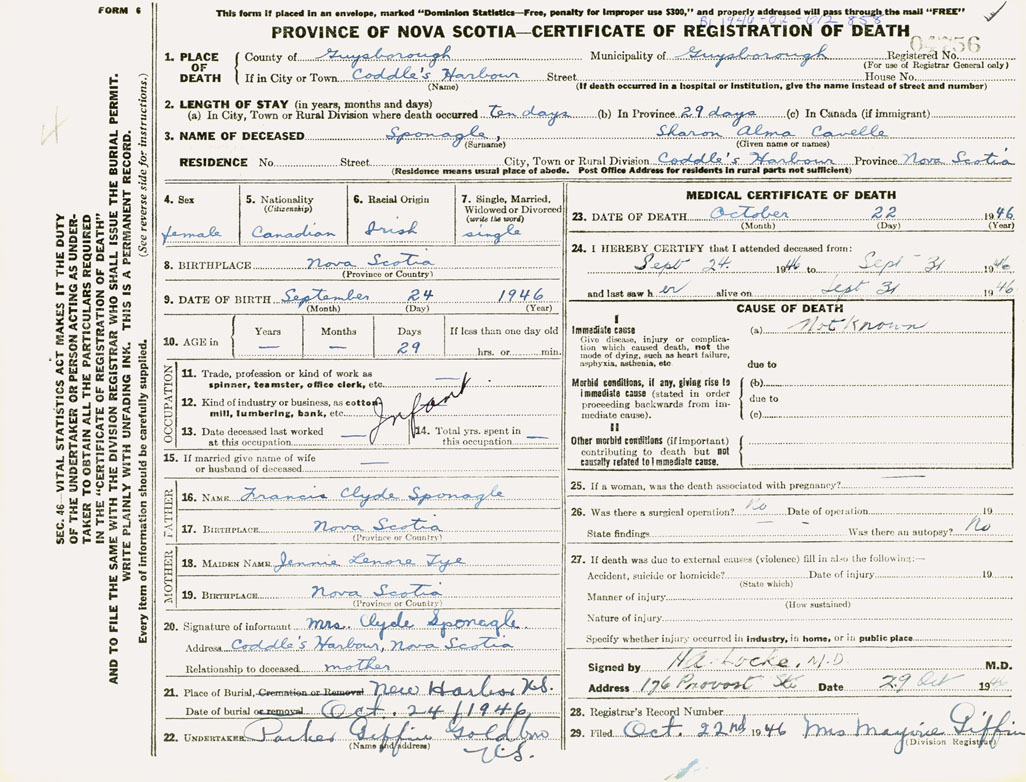 FORM 6
This form if placed in an envelope, marked "Dominion Statistics—Free, penalty for improper use $300," and properly addressed will pass through the mail "FREE"
PROVINCE OF NOVA SCOTIA—CERTIFICATE OF REGISTRATION OF DEATH
1. PLACE OF DEATH County of Guysborough Municipality of Guysborough Registered No.
(For use of Registrar General only)
If in City or Town Coddle's Harbour Street House No.
(Name) (If death occurred in a hospital or institution, give the name instead of street and number)
2. LENGTH OF STAY (in years, months and days)
(a) In City, Town or Rural Division where death occurred ten days (b) In Province 29 days (c) In Canada (if immigrant)
3. NAME OF DECEASED Sponagle, Sharon Alma Cavelle
(Surname) (Given name or names)
RESIDENCE No. Street City, Town or Rural Division Coddle's Harbour Province Nova Scotia
(Residence means usual place of abode. Post Office Address for residents in rural parts not sufficient)
4. Sex female
5. Nationality (Citizenship) Canadian
6. Racial Origin Irish
7. Single, Married, Widowed or Divorced (write the word) single
8. BIRTHPLACE Nova Scotia
(Province or Country)
9. DATE OF BIRTH September 24 1946
(Month) (Day) (Year)
10. AGE in Years — Months — Days 29 If less than one day old hrs. or min.
OCCUPATION
11. Trade, profession or kind of work as spinner, teamster, office clerk, etc. —
12. Kind of industry or business, as cotton mill, lumbering, bank, etc. Infant
13. Date deceased last worked at this occupation —
14. Total yrs. spent in this occupation —
15. If married give name of wife or husband of deceased —
FATHER
16. NAME Francis Clyde Sponagle
17. BIRTHPLACE Nova Scotia
(Province or Country)
MOTHER
18. MAIDEN NAME Jennie Lenore Fye
19. BIRTHPLACE Nova Scotia
(Province or Country)
20. Signature of informant Mrs. Clyde Sponagle
Address Coddle's Harbour, Nova Scotia
Relationship to deceased mother
21. Place of Burial, Cremation or Removal New Harbor N.S.
Date of burial or removal Oct. 24 / 1946
22. UNDERTAKER Parker Giffin Goldboro N.S.
(Name and address)
MEDICAL CERTIFICATE OF DEATH
23. DATE OF DEATH October 22 1946
(Month) (Day) (Year)
24. I HEREBY CERTIFY that I attended deceased from:
Sept 24 1946 to Sept 31 1946
and last saw her alive on Sept 31 1946
CAUSE OF DEATH
I
Immediate cause (a) Not Known
Give disease, injury or complication which caused death, not the mode of dying, such as heart failure, asphyxia, asthenia, etc.
due to
Morbid conditions, if any, giving rise to immediate cause (stated in order proceeding backwards from immediate cause).
(b)
due to
(c)
II
Other morbid conditions (if important) contributing to death but not causally related to immediate cause.
25. If a woman, was the death associated with pregnancy? —
26. Was there a surgical operation? No Date of operation 19
State findings — Was there an autopsy? No
27. If death was due to external causes (violence) fill in also the following:—
Accident, suicide or homicide? Date of injury 19
(State which)
Manner of injury
(How sustained)
Nature of injury
Specify whether injury occurred in industry, in home, or in public place
Signed by H.A. Locke, M.D. M.D.
Address 176 Provost Ste Date 29 Oct 1946
28. Registrar's Record Number
29. Filed Oct. 22nd 1946 Mrs Marjorie Giffin
(Division Registrar)
SEC. 46—VITAL STATISTICS ACT MAKES IT THE DUTY
OF THE UNDERTAKER OR PERSON ACTING AS UNDER-
TAKER TO OBTAIN ALL THE PARTICULARS REQUIRED
IN THE "CERTIFICATE OF REGISTRATION OF DEATH"
AND TO FILE THE SAME WITH THE DIVISION REGISTRAR WHO SHALL ISSUE THE BURIAL PERMIT.
WRITE PLAINLY WITH UNFADING INK. THIS IS A PERMANENT RECORD.
Every item of information should be carefully supplied. (See reverse side for instructions.)